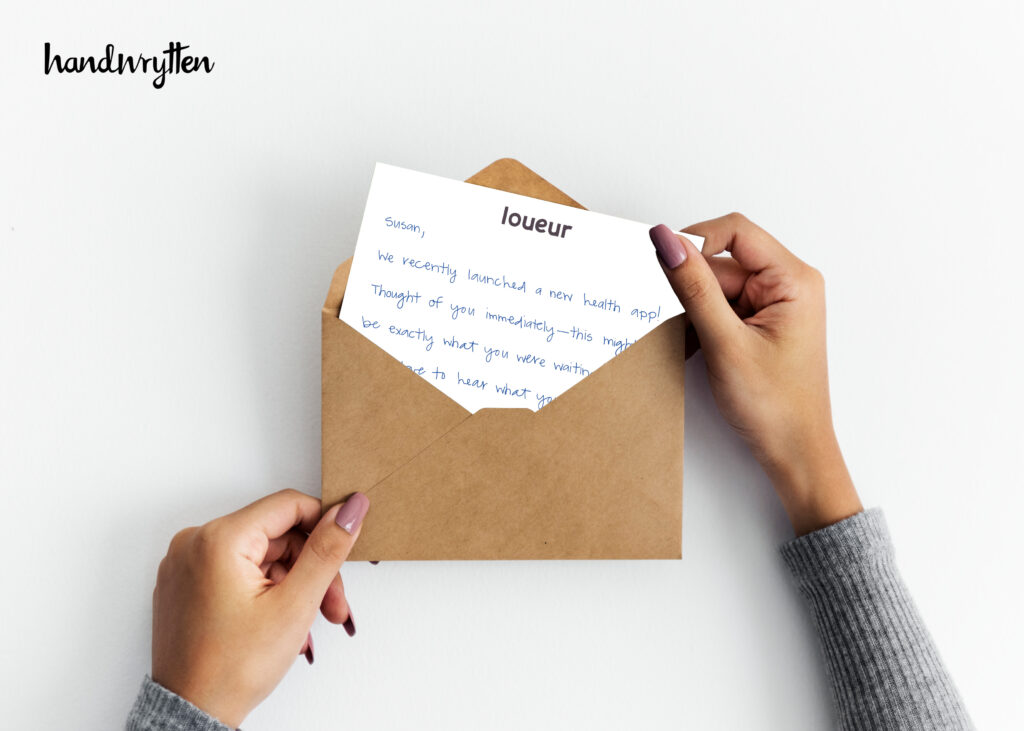 handwrytten
loueur
Susan,
We recently launched a new health app!
Thought of you immediately—this migh
be exactly what you were waitin
to hear what yo